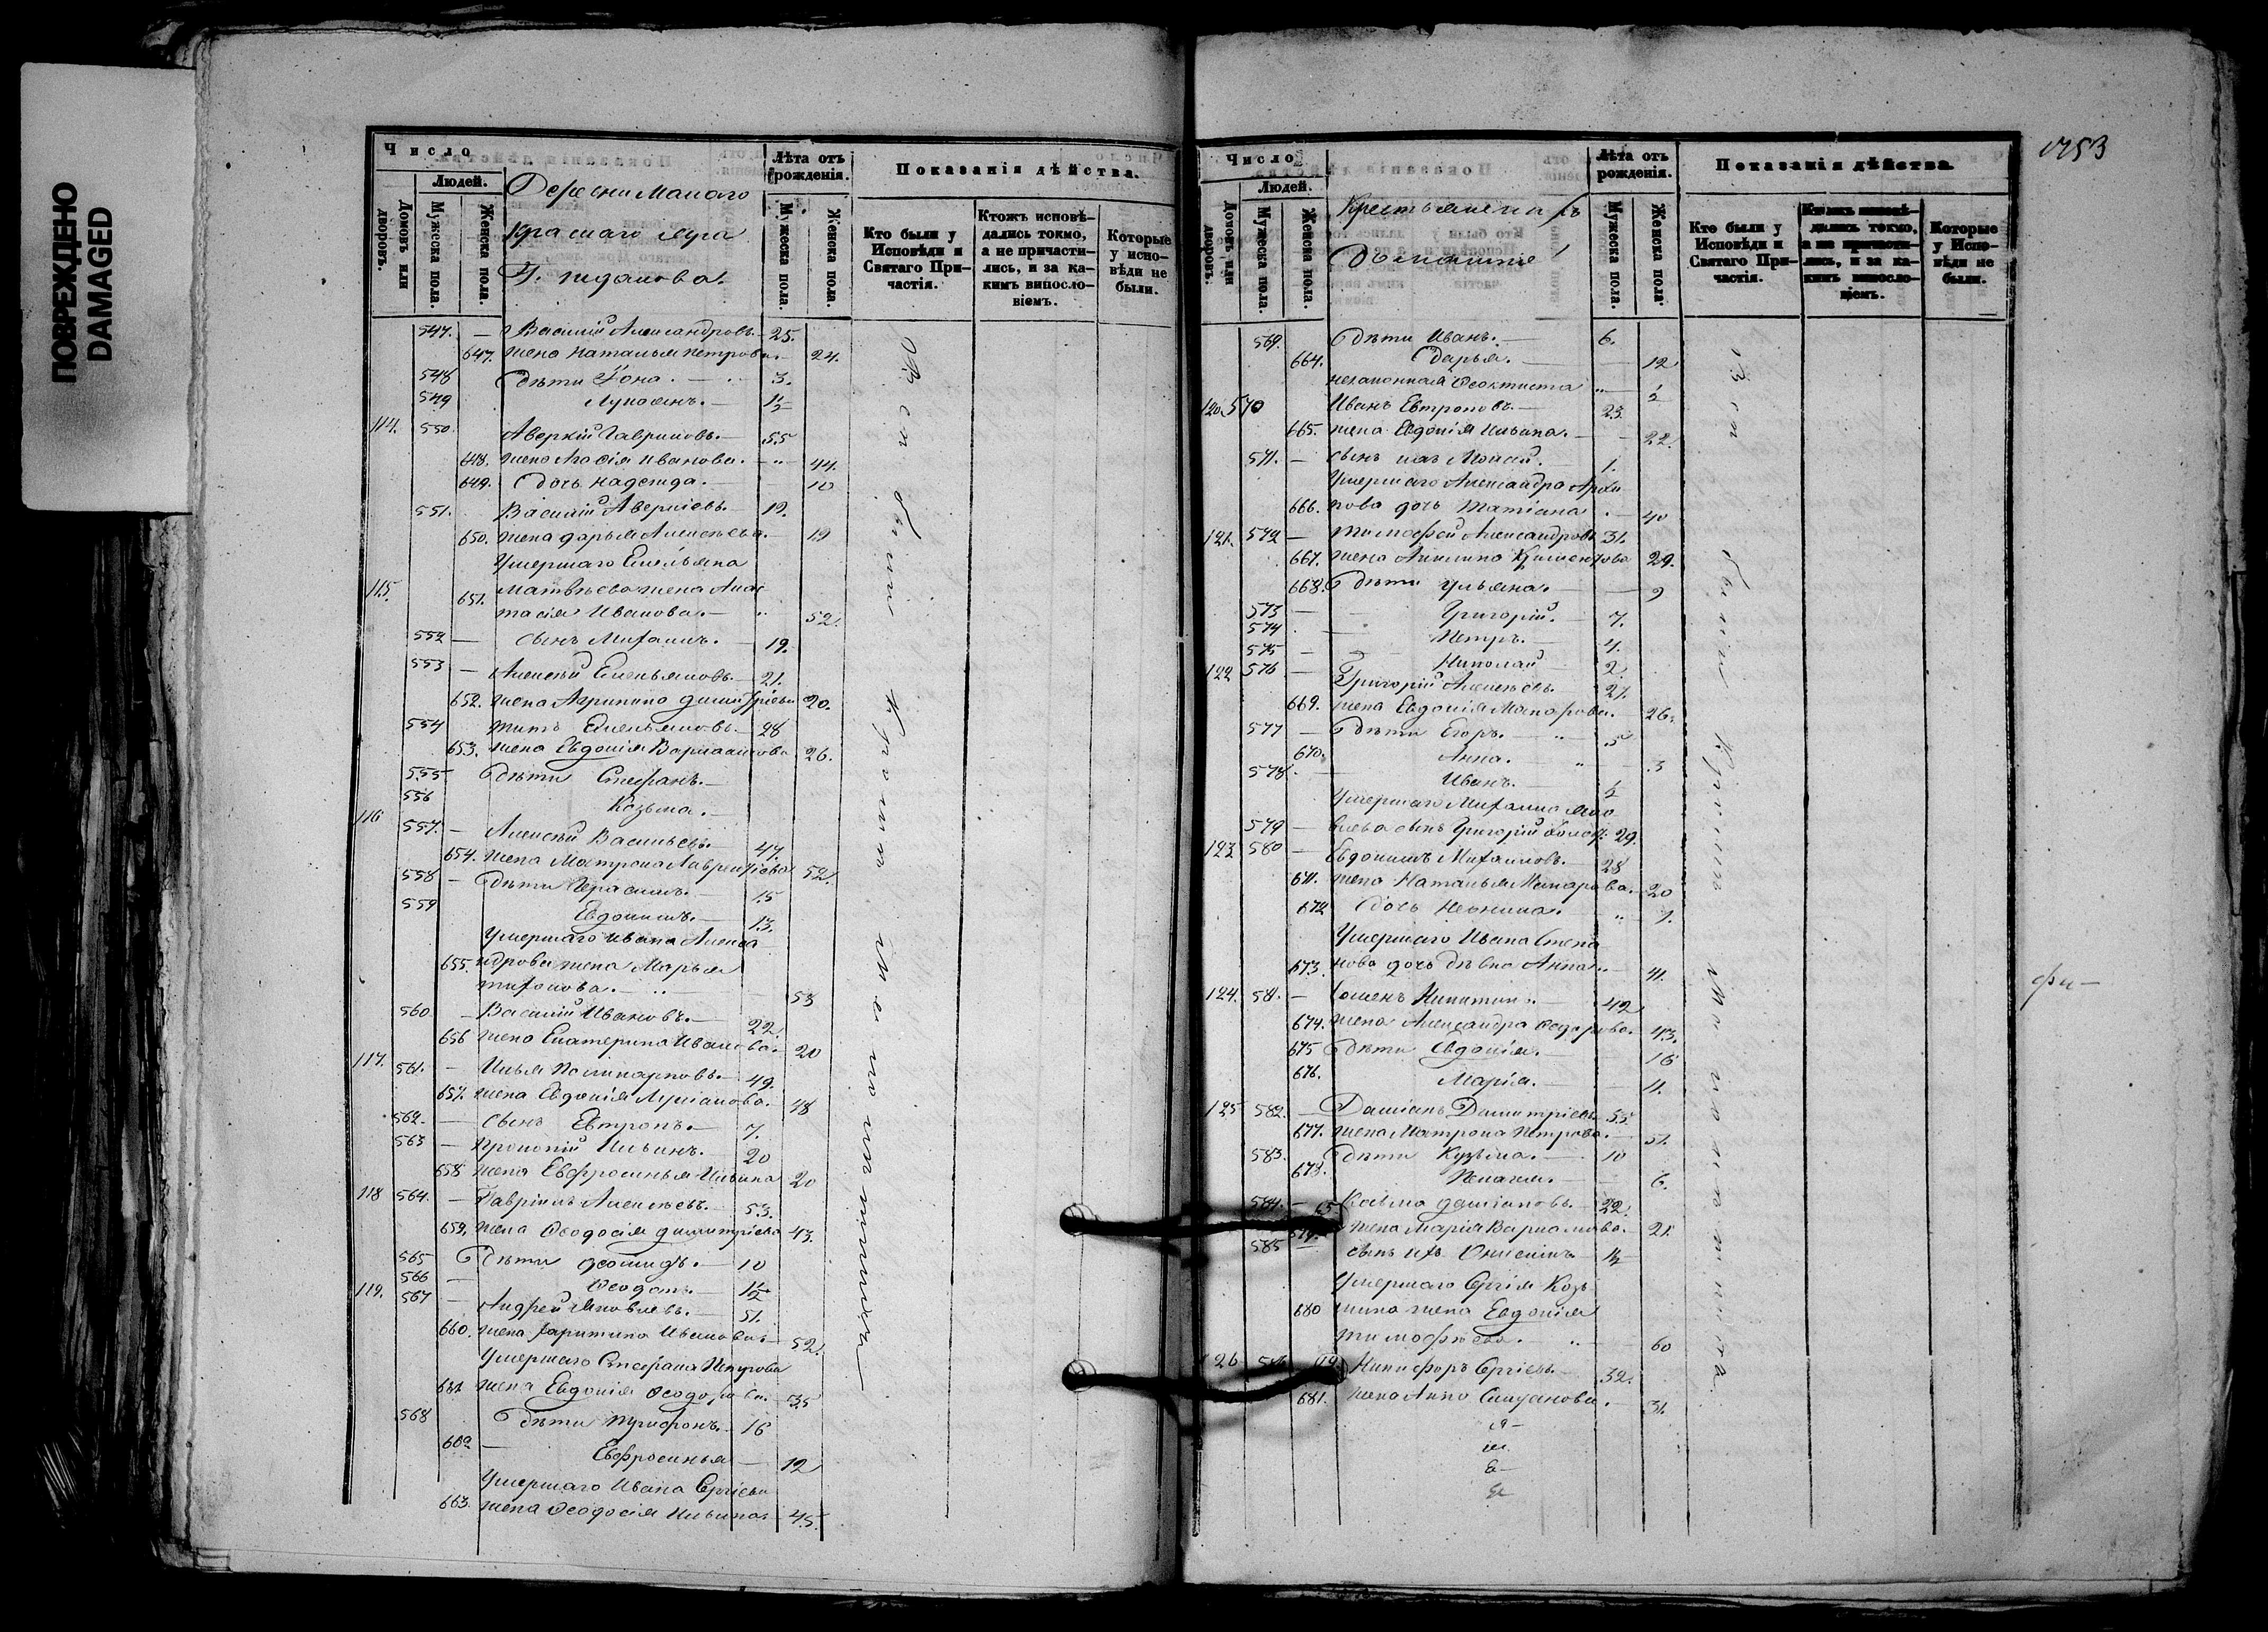 ПОВРЕЖДЕНО
DAMAGED
Число
Людей.
Домовъ или дворовъ.
Мужеска пола.
Женска пола.
Деревни Малаго
Краснаго Луга
Лѣта отъ рожденія.
Мужеска пола
Женска пола.
Показанія дѣйства.
Кто были у Исповѣди и Святаго Причастія.
Ктожъ исповѣдались токмо, а не причастились, и за какимъ винословіемъ.
Которые у исповѣди не были.
547. — Василій Александровъ. — 25.
647. жена Наталья Петрова. — 24.
548 Дѣти Іона. — 3.
549 Лукоянъ. — 1/2
114. 550. Аверкій Гавриловъ. — 55
648. жена Иванова. — 44.
649. Дочь Надежда. — 10
551. Василій Аверкіевъ. — 19.
650. жена Дарья Алексѣева. — 19
Умершаго Емельяна
115. 651. Матвѣева жена Анас
тасія Иванова. — 52.
552 — сынъ Михаилъ. — 19.
553 — Алексѣй Емельяновъ. — 21.
652. жена Агрипина Димитріева 20.
554 Титъ Емельяновъ. — 28
653. жена Евдокія Варлаамова 26.
555 Дѣти Стефанъ. —
556 Козьма. —
116 557. — Алексѣй Васильевъ. — 47.
654. жена Матрона Лаврентіева 52.
558 — Дѣти Герасимъ. — 15
559 Евдокимъ. — 13.
Умершаго Ивана Алекса
655. ндрова жена Марья
Тихонова. — 53
560 — Василій Ивановъ. — 22
656 жена Екатерина Иванова. 20
117. 561. — Илья Поликарповъ. — 49.
657. жена Евдокія Лукіанова. 48
562. — сынъ Евтропъ. — 7.
563 — Прокопій Ильинъ. — 20
658 жена Евфросинья Ильина 20
118 564. — Гавріилъ Алексѣевъ. 53.
659. жена Ѳеодосія Димитріева 43.
565 Дѣти Леонидъ. — 10
566 — Ѳеодотъ 1/2
119. 567 — Андрей Яковлевъ. — 51.
660. жена Харитина Иванова 52.
Умершаго Стефана Петрова
661 жена Евдокія Ѳеодорова. 55
568 Дѣти Трифонъ. 16
662 — Евфросинья — 12
Умершаго Ивана Сергіева
663. жена Ѳеодосія Ильина 45.
Всѣ были кромѣ малолѣтнихъ
1753
Число
Людей.
Домовъ или дворовъ.
Мужеска пола.
Женска пола.
Крестьяне и ихъ
Домашніе
Лѣта отъ рожденія.
Мужеска пола.
Женска пола.
Показанія дѣйства.
Кто были у Исповѣди и Святаго Причастія.
Ктожъ исповѣдались токмо, а не причастились, и за какимъ винословіемъ.
Которые у Исповѣди не были.
569. Дѣти Иванъ. — 6.
664. Дарья. — 12
незаконная Ѳеоктиста 1/2
120. 570 Иванъ Евтроповъ. — 23.
665. жена Евдокія Ильина. — 22.
571. — сынъ ихъ Моисей. 1.
Умершаго Александра Архи
666. пова дочь Татіана. — 40
121. 572 — Тимофей Александровъ 31.
667. жена Акилина Климентова 29.
668. Дѣти Ульяна. — 9
573 — Григорій. 7.
574 — Петръ. — 4.
575 — Николай — 2.
122 576 — Григорій Алексѣевъ. 27.
669. жена Евдокія Макарова. 26.
577 — Дѣти Егоръ. — 5
670. Анна. — 3
578. — Иванъ. — 1/2
Умершаго Михаила Яко
579 — влева сынъ Григорій холост. 29.
123 580 — Евдокимъ Михаиловъ. — 28
671. жена Наталья Макарова. 20
672 дочь Неонила. — 1.
Умершаго Ивана Степа
673. нова дочь дѣвка Анна — 41.
124. 581. — Никитинъ. — 42
674. жена Александра Ѳедорова. 43.
675 Дѣти Евдокія. — 16
676. Марія. — 11.
125 582. — Даміанъ Димитріевъ 55.
677. жена Матрона Петрова. 51.
583. Дѣти Кузьма. — 10
678. Пелагея. — 6.
584. — Козьма Даміановъ. — 22.
679. жена Марія Варламова. 21.
585 — сынъ ихъ Онисимъ 1/2
Умершаго Сергія Козь
680 мина жена Евдокія
Тимофѣева. — 60
126 586 Никифоръ Сергіевъ. 32.
681. жена Анна Сиуянова. — 31.
Всѣ были кромѣ малолѣтнихъ
фи—